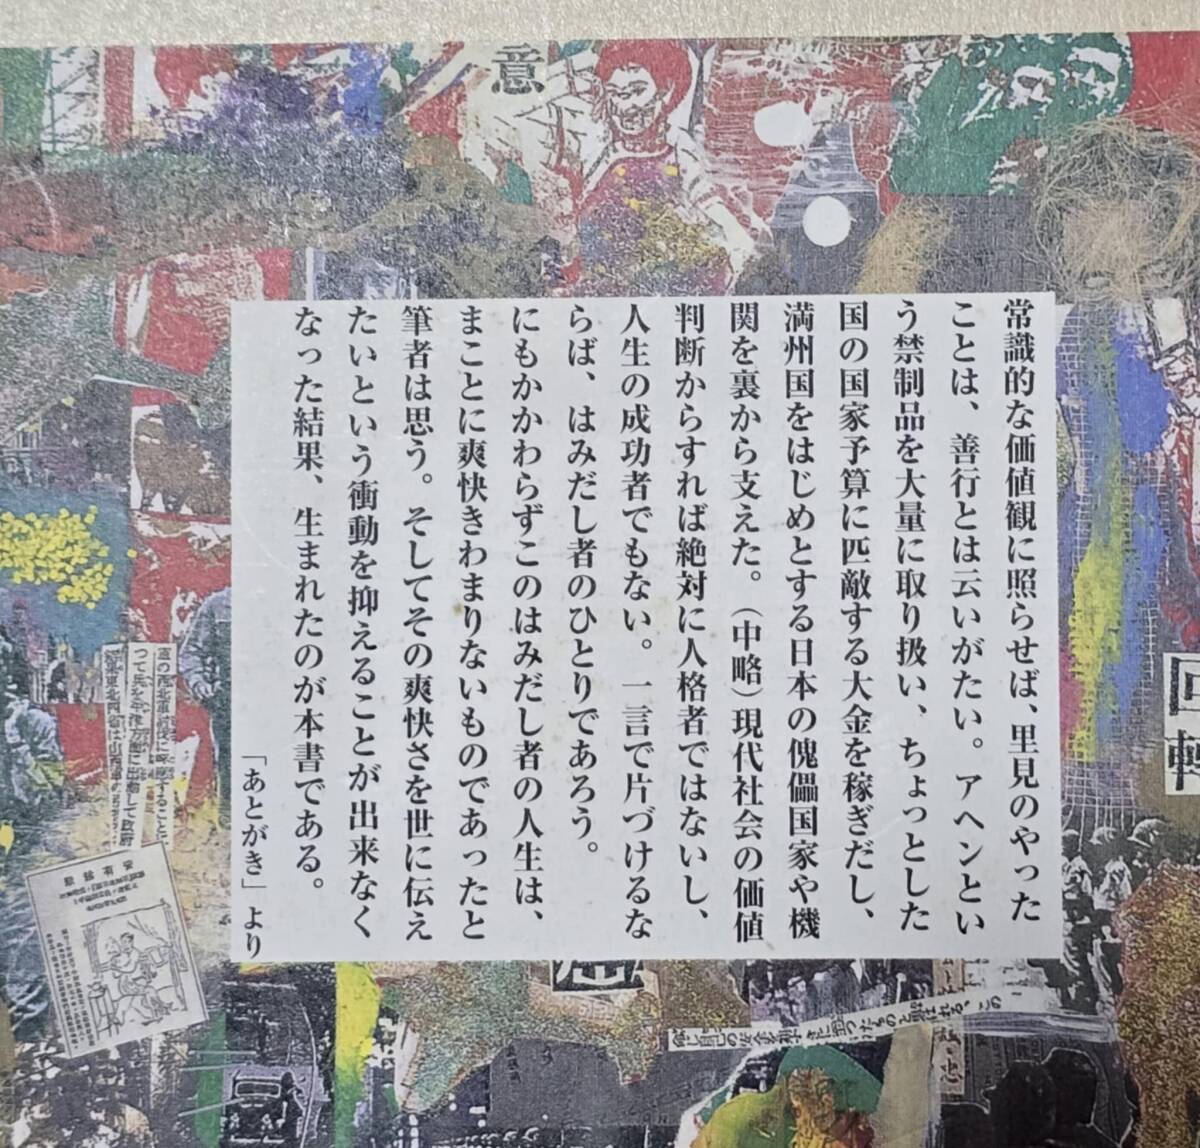 意
常識的な価値観に照らせば、里見のやった
ことは、善行とは云いがたい。アヘンとい
う禁制品を大量に取り扱い、ちょっとした
国の国家予算に匹敵する大金を稼ぎだし、
満州国をはじめとする日本の傀儡国家や機
関を裏から支えた。（中略）現代社会の価値
判断からすれば絶対に人格者ではないし、
人生の成功者でもない。一言で片づけるな
らば、はみだし者のひとりであろう。
にもかかわらずこのはみだし者の人生は、
まことに爽快きわまりないものであったと
筆者は思う。そしてその爽快さを世に伝え
たいという衝動を抑えることが出来なく
なった結果、生まれたのが本書である。
「あとがき」より
回転